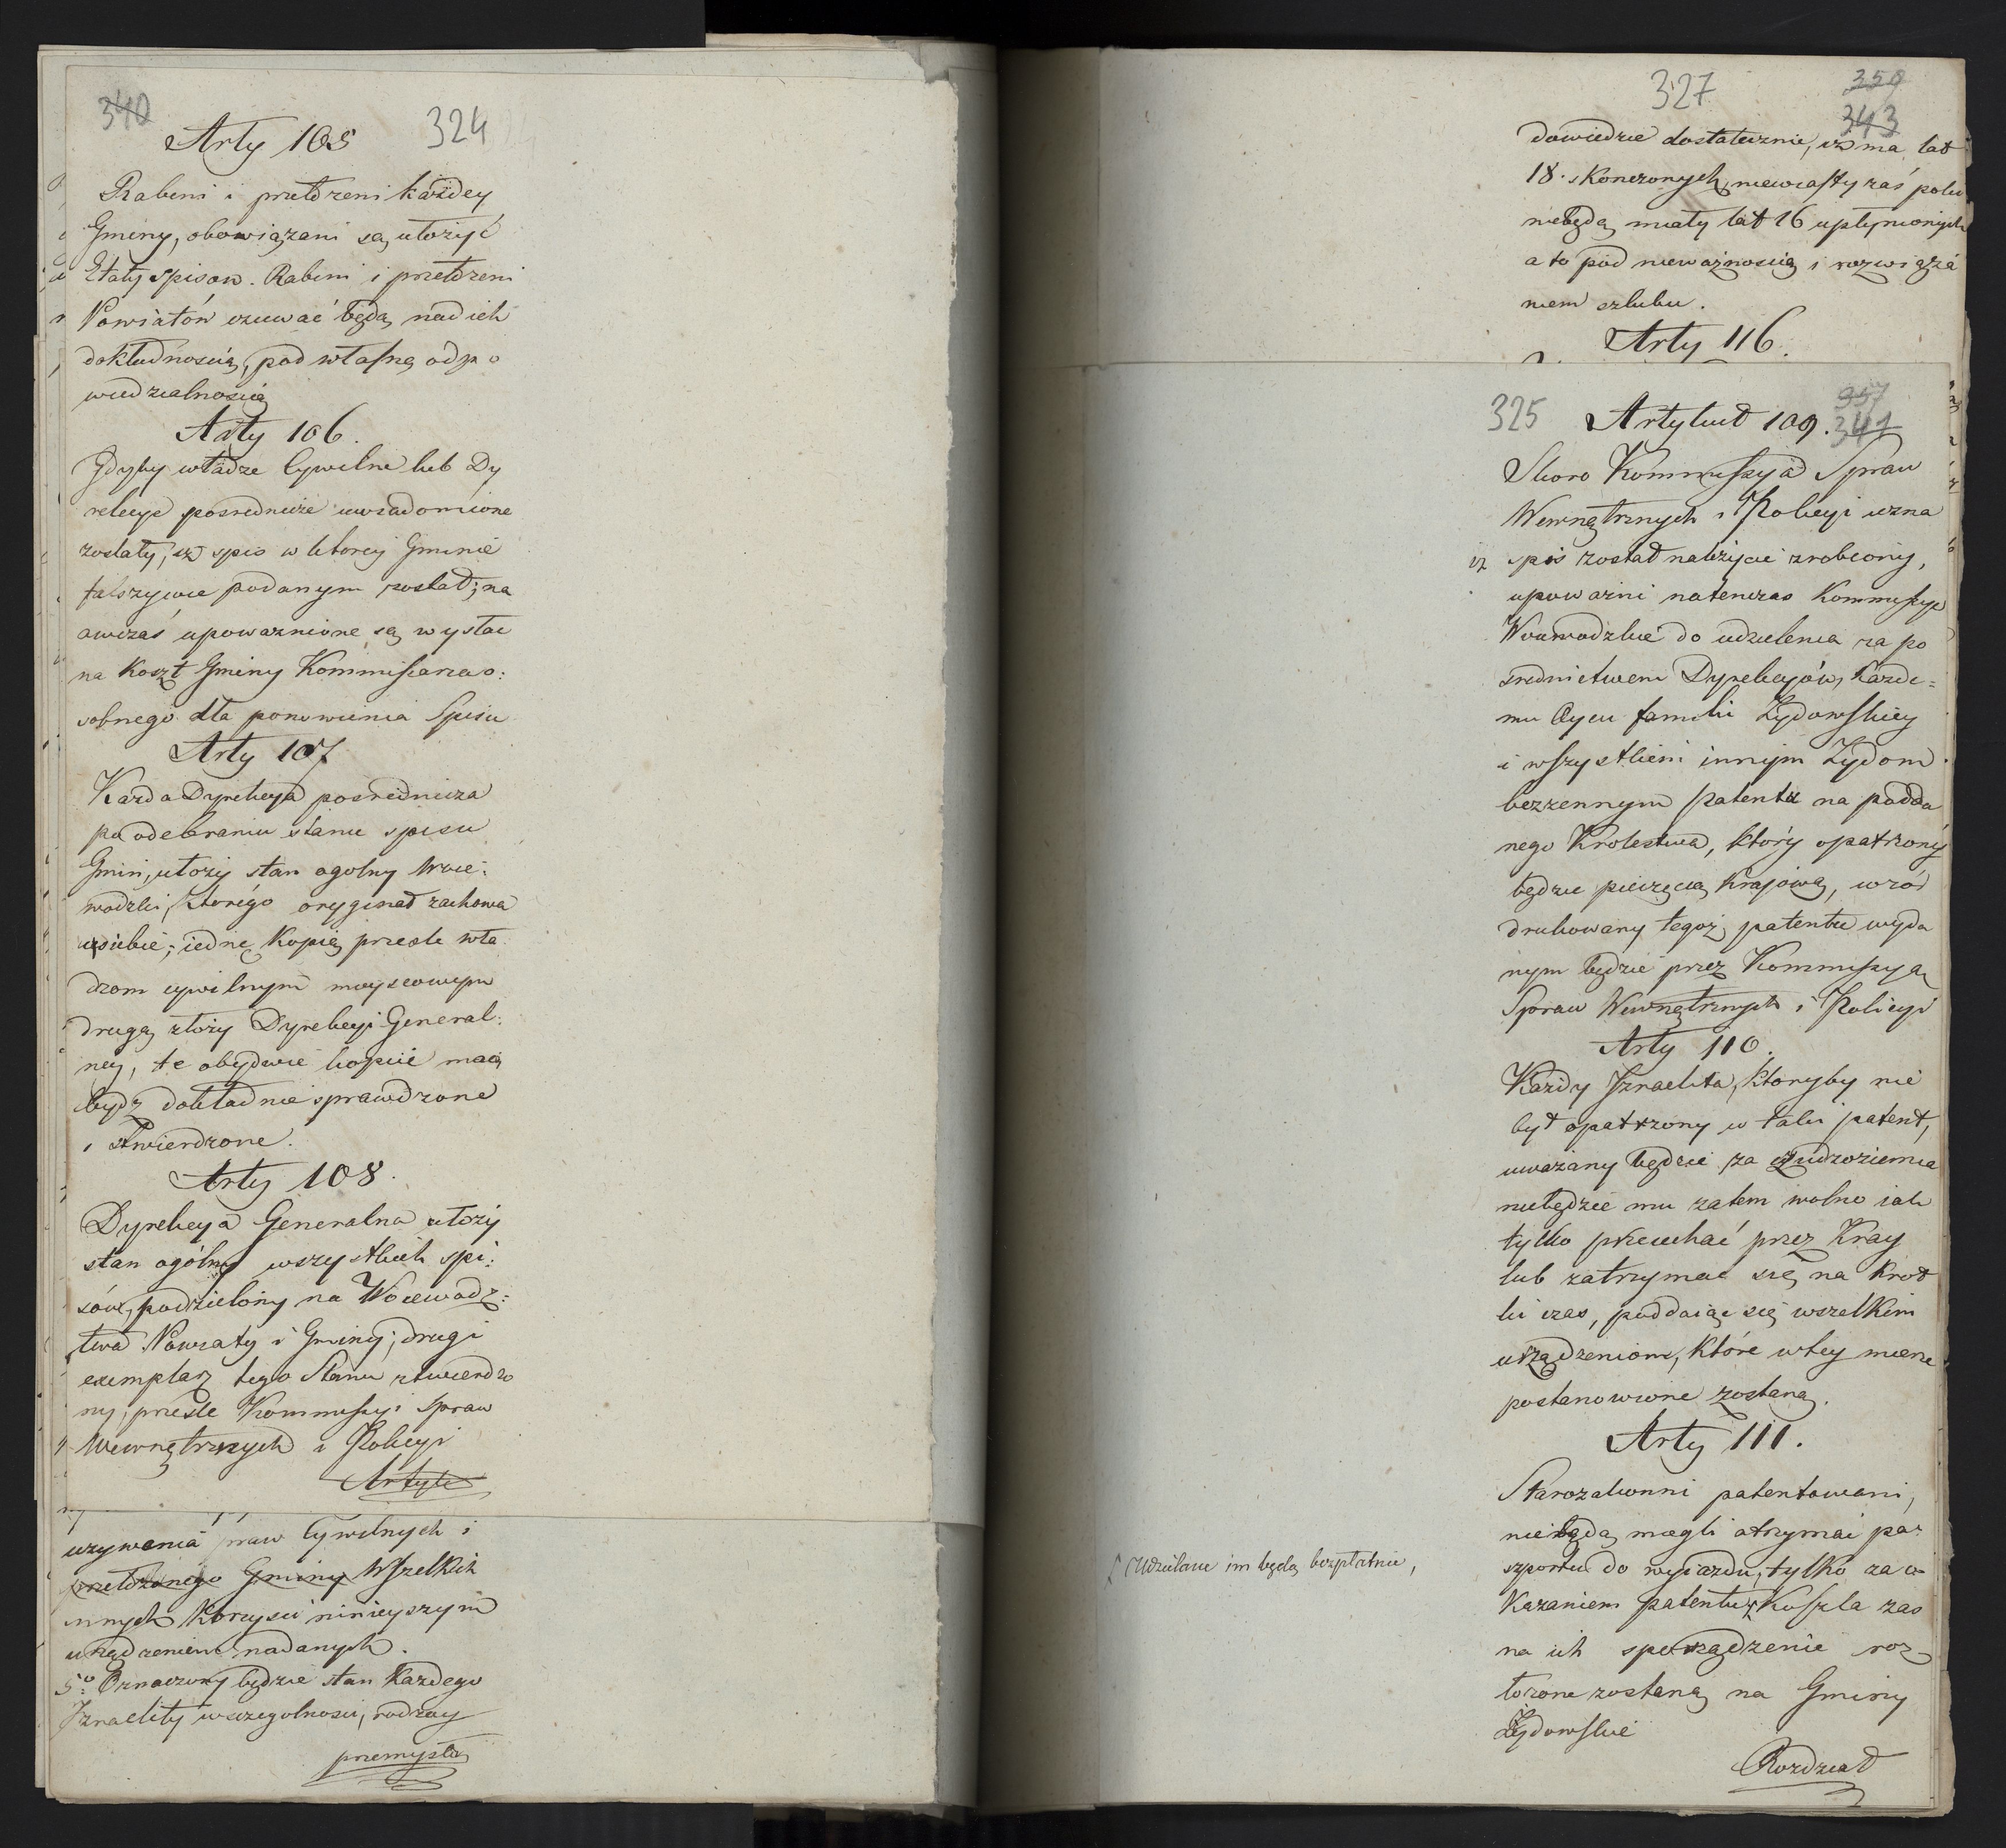 340
324
Arty 105
Rabini i przełożeni każdey
Gminy, obowiązani są ułożyć
Etaty spisow. Rabini i przełożeni
Powiatów czuwać będą nad ich
dokładnością, pod własną odpo
wiedzialnością
Arty 106.
Gdyby władze Cywilne lub Dy
rekcye pośrednicze uwiadomione
zostały, iż spis w którey Gminie
falszywie podanym został; na
owczas upoważnione są wysłać
na koszt Gminy Kommissarza o:
sobnego dla ponowienia Spisu
Arty 107
Każda Dyrekcya pośrednicza
po odebraniu stanu spisu
Gmin, ułoży stan ogolny Woie:
wodzki, którego oryginał zachowa
u siebie; iednę kopię prześle wła
dzom cywilnym mieyscowym
drugą złoży Dyrekcyi General:
ney, te obydwie kopiie maią
bydź dokładnie sprawdzone
i stwierdzone.
Arty 108.
Dyrekcya Generalna ułoży
stan ogólny wszystkich spi:
sów, podzielony na Woiewodz:
twa Powiaty i Gminy; drugi
exemplarz tego Stanu stwierdzo
ny, prześle Kommissyi Spraw
Wewnętrznych i Policyi
Artyk
używania praw Cywilnych i
przełożonego Gminy wszelkich
innych korzyści ninieyszym
urządzeniem nadanych.
5o. Oznaczony będzie stan każdego
Izraelity wszczegolności, rodzay
przemysłu
327
350
343
dowiedzie dostatecznie, iż ma lat
18. skonczonych, niewiasty zaś póki
niebędą miały lat 16 upłynionych
a to pod nieważnością i rozwiąza
niem szlubu.
Arty 116.
325
357
341
Artykuł 109.
Skoro Kommissya Spraw
Wewnętrznych i Policyi uzna
iż spis został należycie zrobiony,
upoważni natenczas Kommissye
Woiewodzkie do udzielenia za po
średnictwem Dyrekcyów, każde=
mu Oycu familii Żydowskiey
i wszystkim innym Żydom
bezżennym patentu na podda
nego Krolestwa, który opatrzony
będzie pieczęcią Krajową, wzór
drukowany tegoż patentu wyda
nym będzie przez Kommissyą
Spraw Wewnętrznych i Policyi
Arty 110.
Każdy Izraelita, któryby nie
był opatrzony w taki patent,
uważany będzie za cudzoziemca
niebędzie mu zatem wolno iak
tylko przeiechać przez Kray
lub zatrzymać się na krot
ki czas, poddaiąc się wszelkim
urządzeniom, które wtey mierze
postanowione zostaną.
Arty 111.
Starozakonni patentowani,
niebędą mogli otrzymać pas
szportu do wyiazdu, tylko za o
kazaniem patentu, Koszta zas
na ich sporządzenie roz
łożone zostaną na Gminy
Żydowskie
Udzielane im będą bezpłatnie,
Rozdział